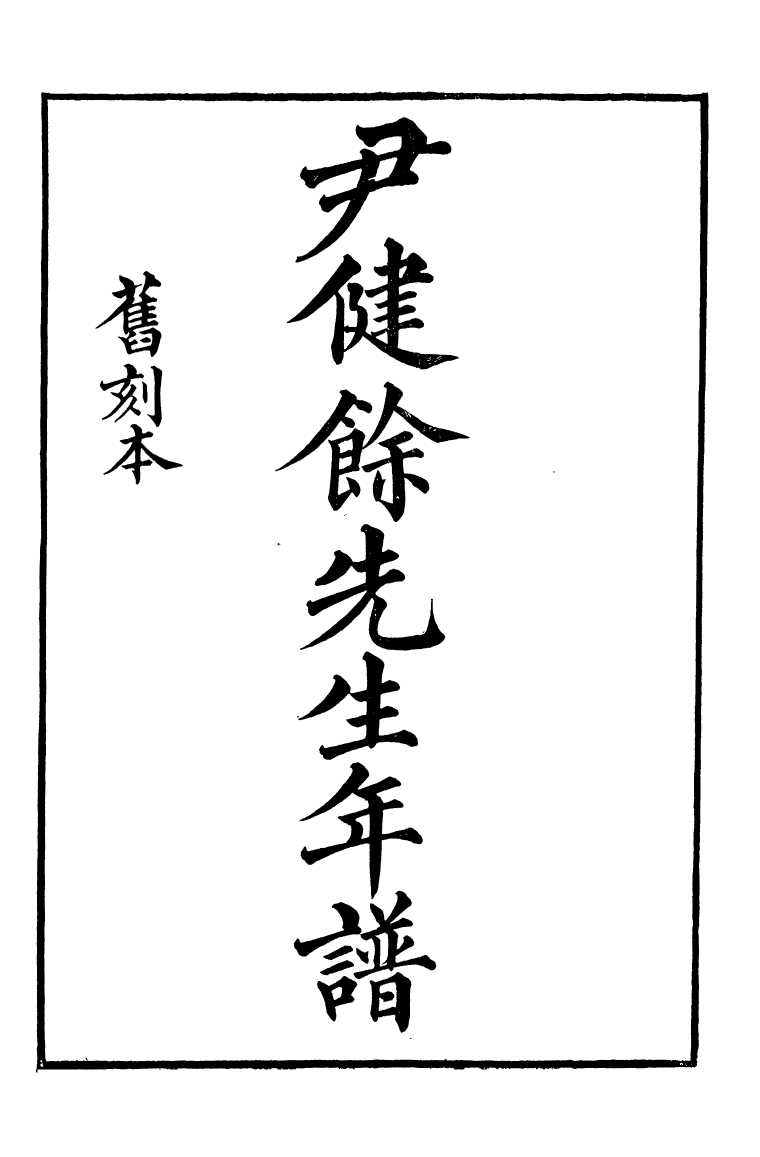 尹健餘先生年譜
舊刻本